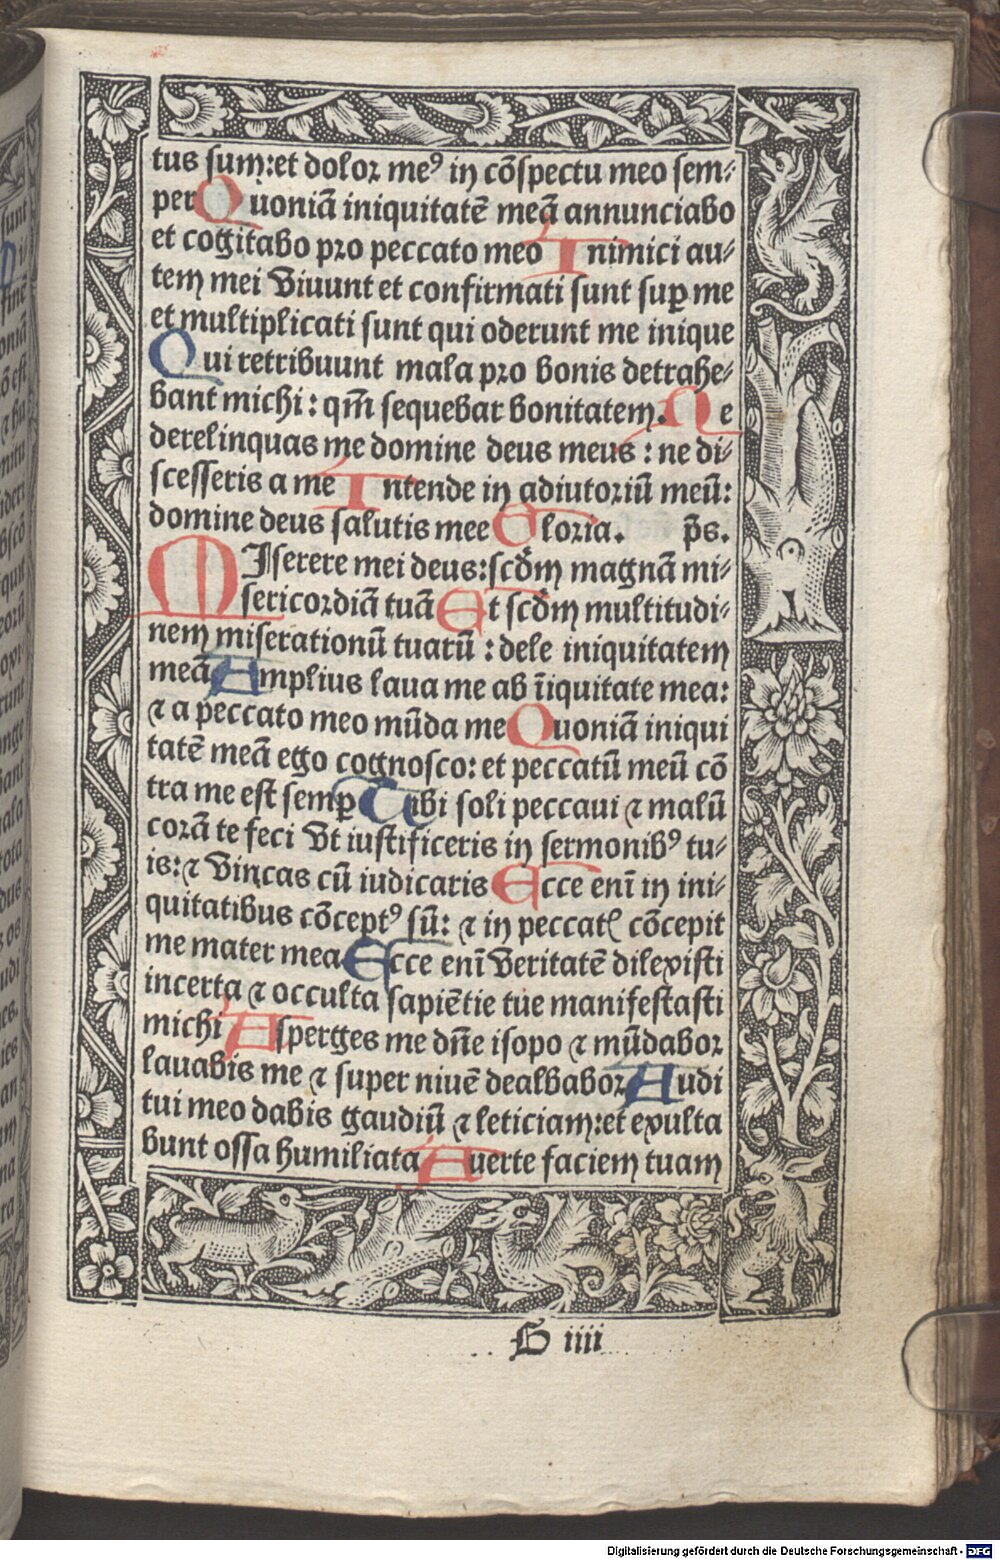 tus sum:et dolor meꝰ in cõspectu meo sem⸗
per Quoniã iniquitatẽ meã annunciabo
et cogitabo pro peccato meo Inimici au⸗
tem mei viuunt et confirmati sunt suꝑ me
et multiplicati sunt qui oderunt me inique
Qui retribuunt mala pro bonis detrahe⸗
bant michi: qm̃ sequebar bonitatem. Ne
derelinquas me domine deus meus: ne di⸗
scesseris a me Intende in adiutoriũ meũ:
domine deus salutis mee Gloria. p̃s.
MIserere mei deus: scd̃m magnã mi⸗
sericordiã tuã Et scd̃m multitudi⸗
nem miserationũ tuarũ: dele iniquitatem
meã Amplius laua me ab ĩiquitate mea:
⁊ a peccato meo mũda me Quoniã iniqui
tatẽ meã ego cognosco: et peccatũ meũ cõ
tra me est semꝑ Tibi soli peccaui ⁊ malũ
corã te feci vt iustificeris in sermonibꝰ tu⸗
is: ⁊ vincas cũ iudicaris Ecce enĩ in ini⸗
quitatibus cõceptꝰ sũ: ⁊ in peccatꝭ cõcepit
me mater mea Ecce enĩ veritatẽ dilexisti
incerta ⁊ occulta sapiẽtie tue manifestasti
michi Asperges me dñe isopo ⁊ mũdabor
lauabis me ⁊ super niuẽ dealbabor Audi
tui meo dabis gaudiũ ⁊ leticiam:et exulta
bunt ossa humiliata Auerte faciem tuam
G iiii
Digitalisierung gefördert durch die Deutsche Forschungsgemeinschaft - DFG